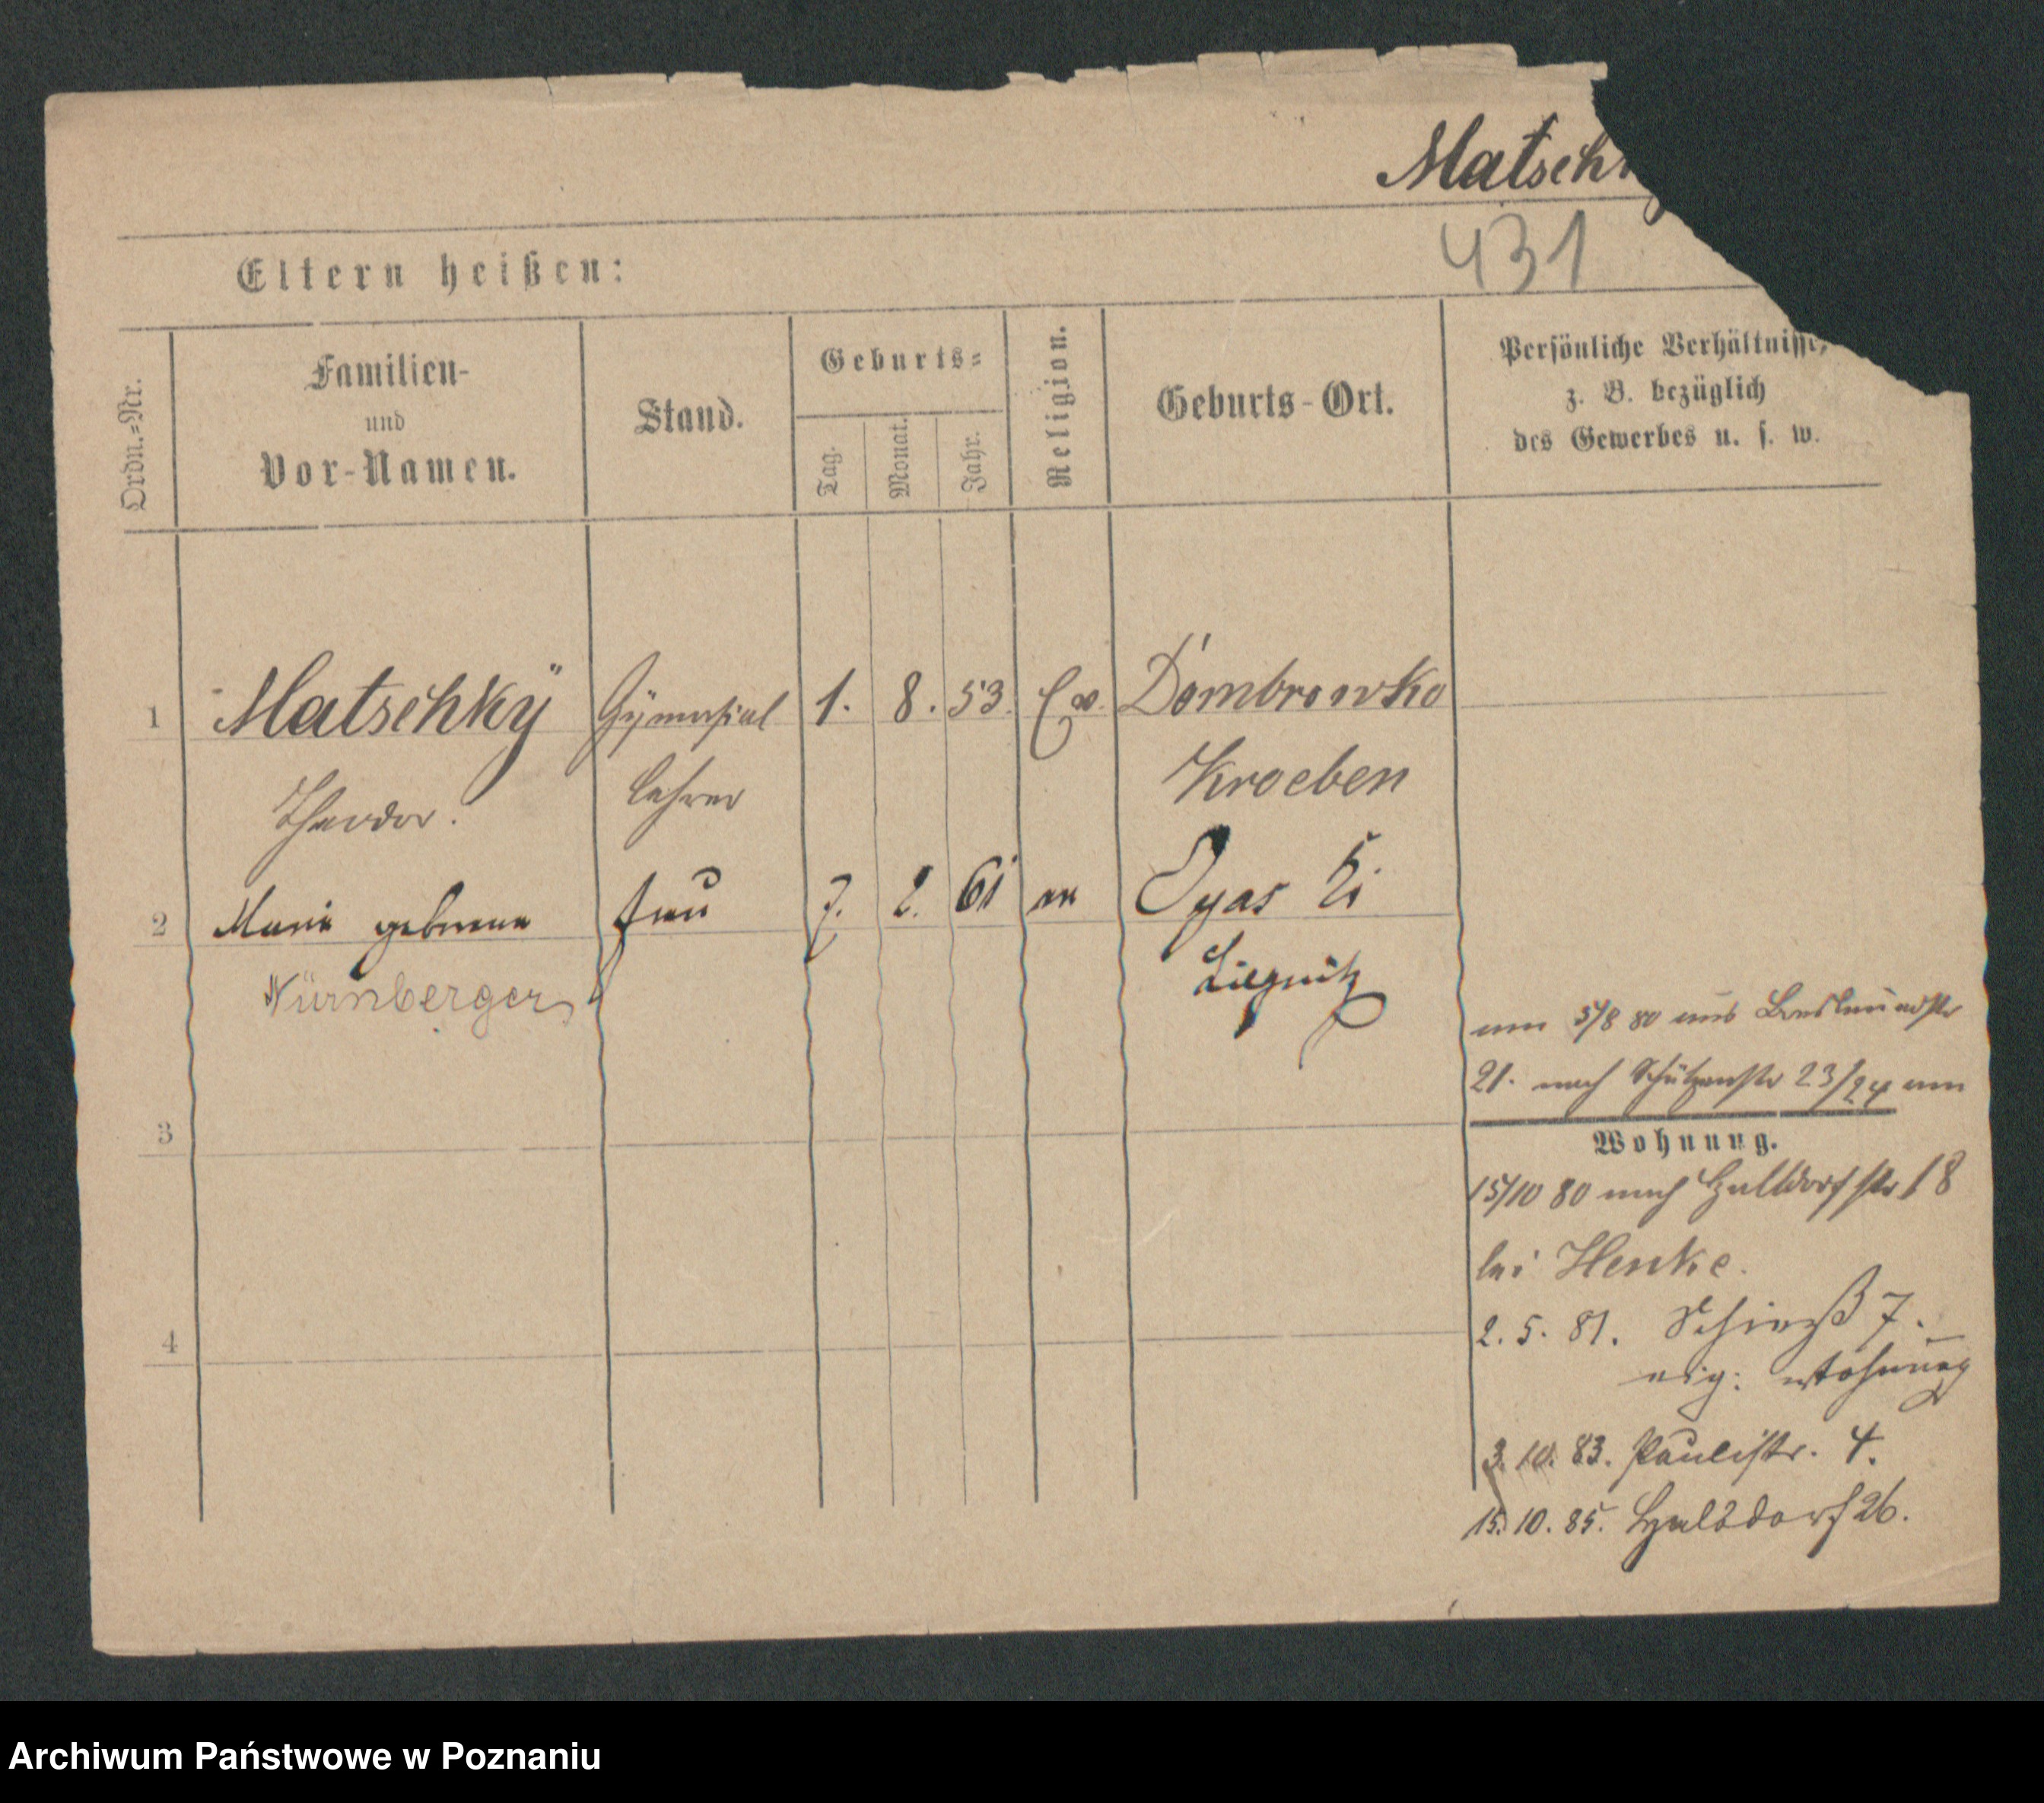 Matschk
431
Eltern heißen:
Ordn.=Nr.
Familien-
und
Vor-Namen.
Stand.
Geburts=
Tag.
Monat.
Jahr.
Religion.
Geburts-Ort.
Persönliche Verhältnisse,
z. B. bezüglich
des Gewerbes u. s. w.
1 Matschky Gymnasial 1. 8. 53. Ev. Dombrowko
Theodor. lehrer Kroeben
2 Marie geborene Frau 7. 2. 61 ev Oyas Kr
Nürnberger Liegnitz
3
4
um 3/8 80 aus
21. nach Schützenstr 23/24 um
Wohnung.
15/10 80 nach Halbdorfstr 18
bei Henke.
2. 5. 81. Schieß 7.
eig: Wohnung
3. 10. 83. Paulistr. 4.
15. 10. 85. Halbdorf 26.
Archiwum Państwowe w Poznaniu